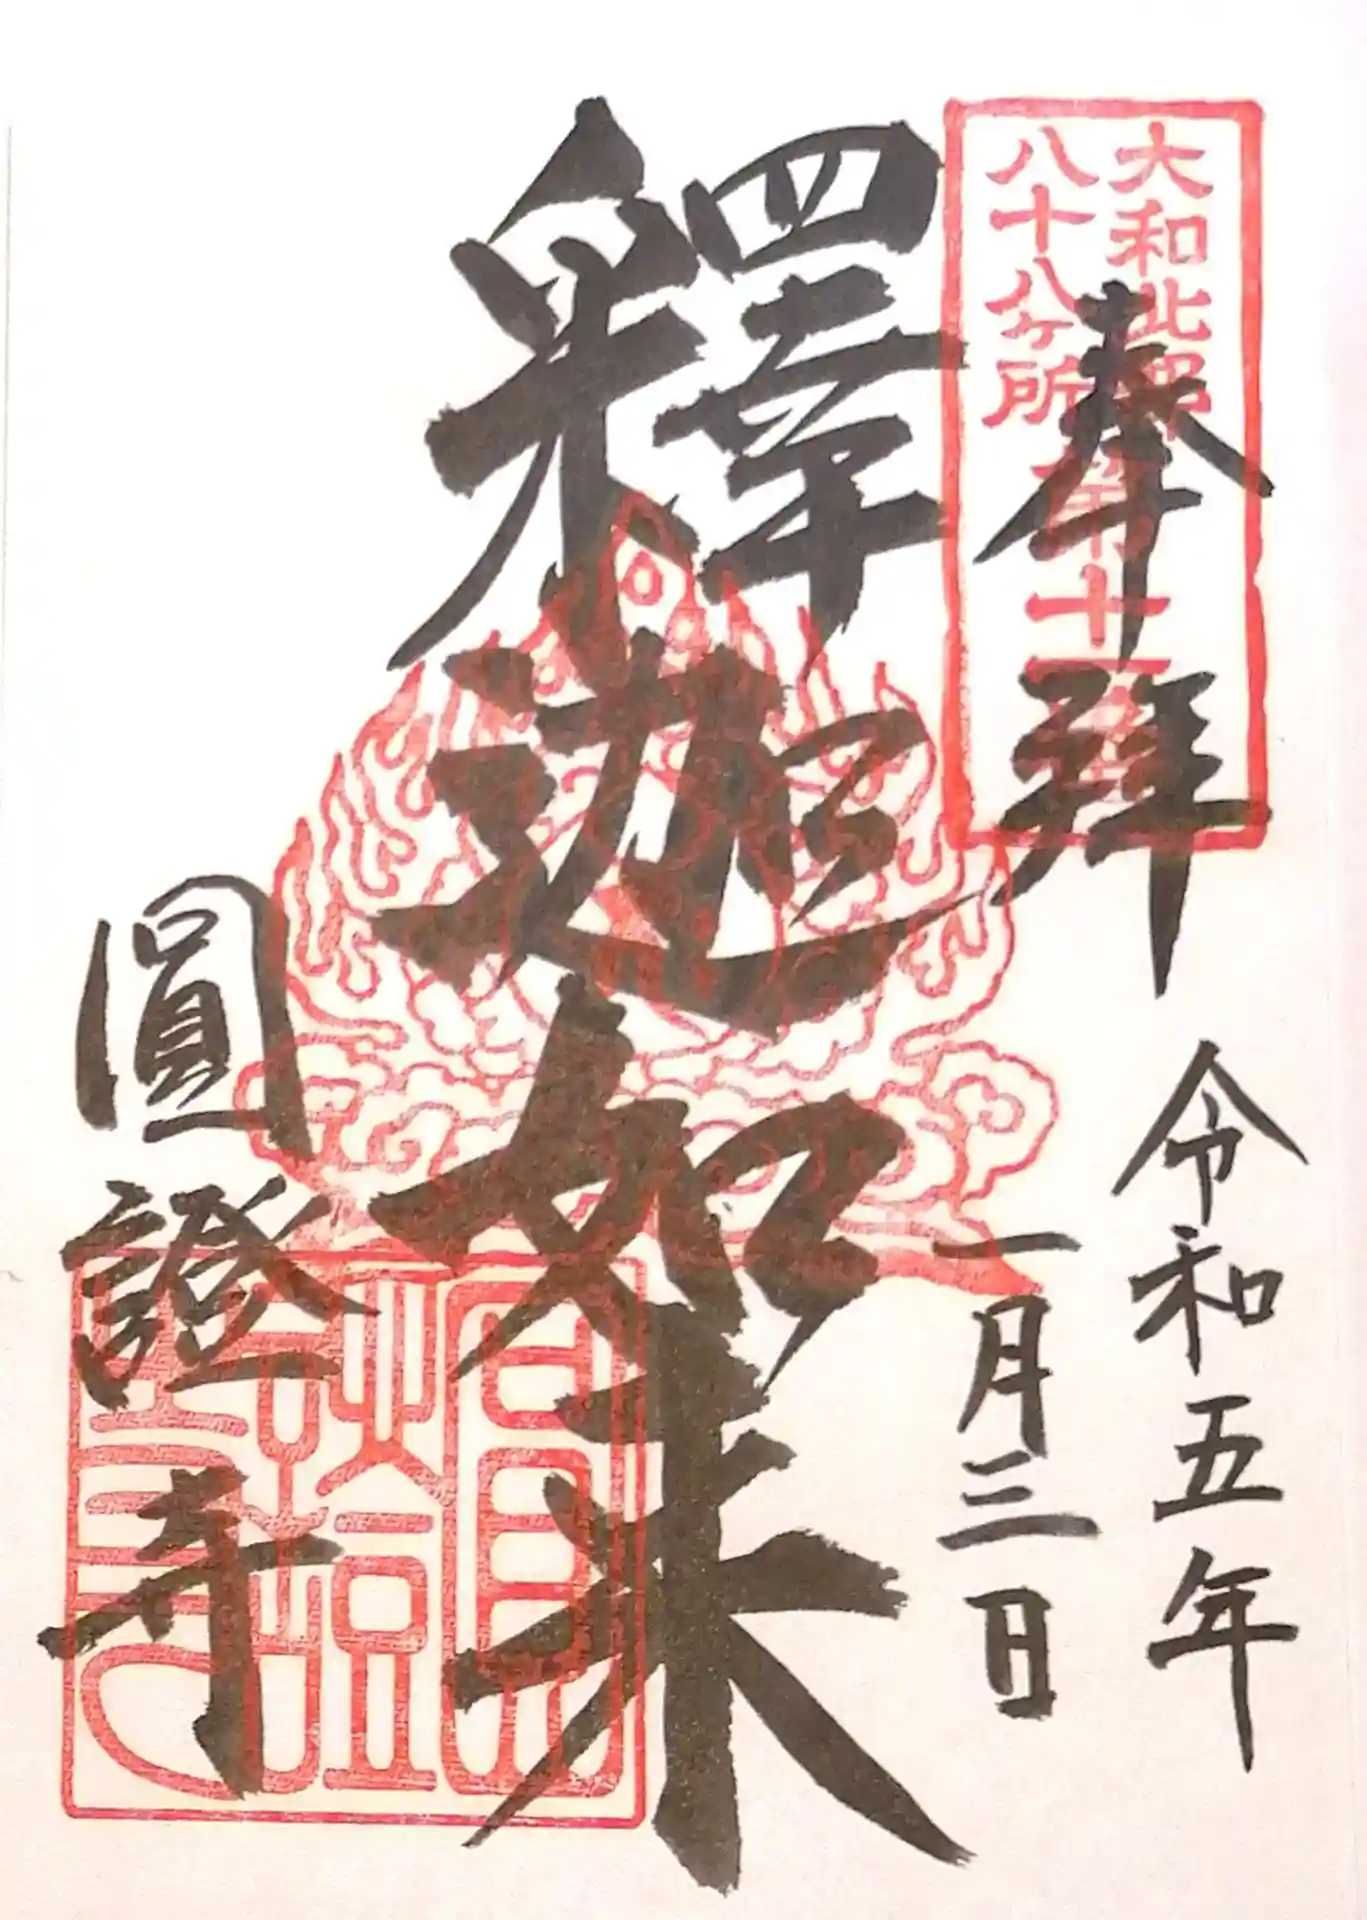 奉拝
大和北部
八十八ヶ所
第十一
令和五年
一月三日
釋迦如来
圓證寺